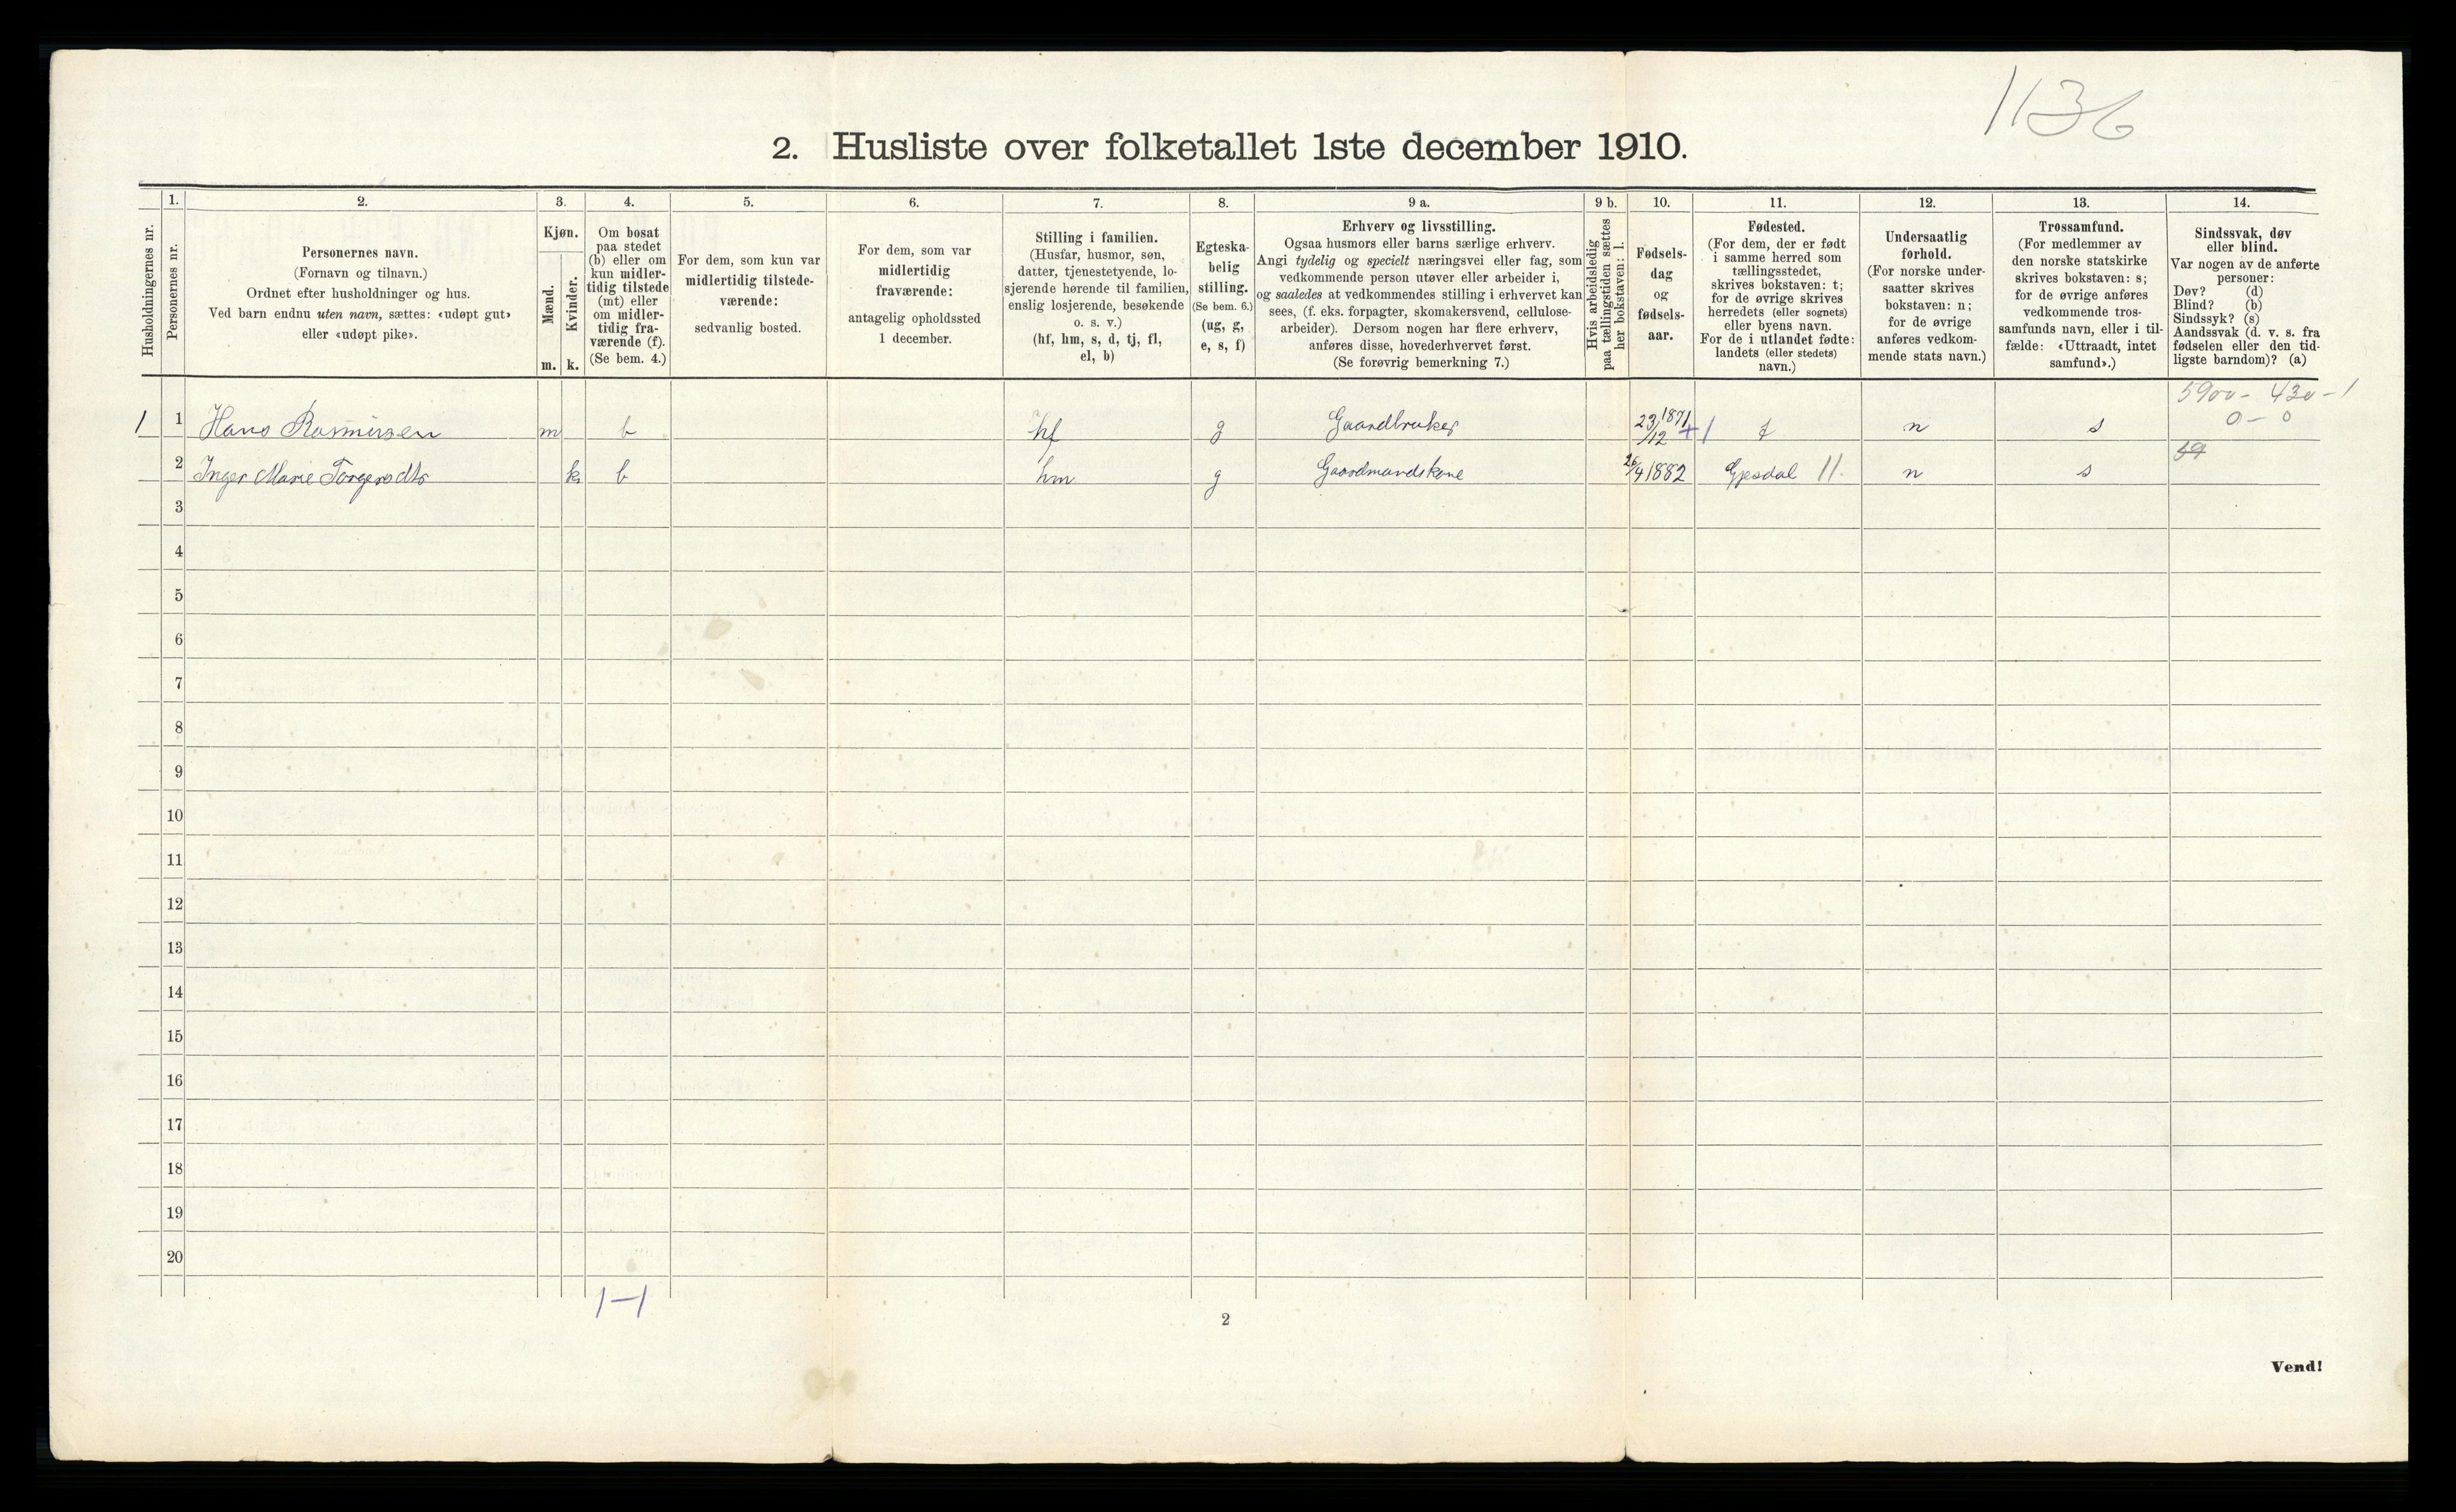 1136
2. Husliste over folketallet 1ste december 1910.
Husholdningernes nr.
1.
Personernes nr.
2.
Personernes navn.
(Fornavn og tilnavn.)
Ordnet efter husholdninger og hus.
Ved barn endnu uten navn, sættes: «udøpt gut»
eller «udøpt pike».
3.
Kjøn.
Mænd.
m.
Kvinder.
k.
4.
Om bosat
paa stedet
(b) eller om
kun midler-
tidig tilstede
(mt) eller
om midler-
tidig fra-
værende (f).
(Se bem. 4.)
5.
For dem, som kun var
midlertidig tilstede-
værende:
sedvanlig bosted.
6.
For dem, som var
midlertidig
fraværende:
antagelig opholdssted
1 december.
7.
Stilling i familien.
(Husfar, husmor, søn,
datter, tjenestetyende, lo-
sjerende hørende til familien,
enslig losjerende, besøkende
o. s. v.)
(hf, hm, s, d, tj, fl,
el, b)
8.
Egteska-
belig
stilling.
(Se bem. 6.)
(ug, g,
e, s, f)
9 a.
Erhverv og livsstilling.
Ogsaa husmors eller barns særlige erhverv.
Angi tydelig og specielt næringsvei eller fag, som
vedkommende person utøver eller arbeider i,
og saaledes at vedkommendes stilling i erhvervet kan
sees, (f. eks. forpagter, skomakersvend, cellulose-
arbeider). Dersom nogen har flere erhverv,
anføres disse, hovederhvervet først.
(Se forøvrig bemerkning 7.)
9 b.
Hvis arbeidsledig
paa tællingstiden sættes
her bokstaven: l.
10.
Fødsels-
dag
og
fødsels-
aar.
11.
Fødested.
(For dem, der er født
i samme herred som
tællingsstedet,
skrives bokstaven: t;
for de øvrige skrives
herredets (eller sognets)
eller byens navn.
For de i utlandet fødte:
landets (eller stedets)
navn.)
12.
Undersaatlig
forhold.
(For norske under-
saatter skrives
bokstaven: n;
for de øvrige
anføres vedkom-
mende stats navn.)
13.
Trossamfund.
(For medlemmer av
den norske statskirke
skrives bokstaven: s;
for de øvrige anføres
vedkommende tros-
samfunds navn, eller i til-
fælde: «Uttraadt, intet
samfund».)
14.
Sindssvak, døv
eller blind.
Var nogen av de anførte
personer:
Døv? (d)
Blind? (b)
Sindssyk? (s)
Aandssvak (d. v. s. fra
fødselen eller den tid-
ligste barndom)? (a)
5900 - 430 - 1
0 - 0
1 1 Hans Rasmussen m b hf g Gaardbruker 23/12 1871 +1 t n s
2 Inger Marie Torgersdtr k b hm g Gaardmandskone 26/4 1882 Gjesdal 11. n s
3
4
5
6
7
8
9
10
11
12
13
14
15
16
17
18
19
20
1-1
2
Vend!